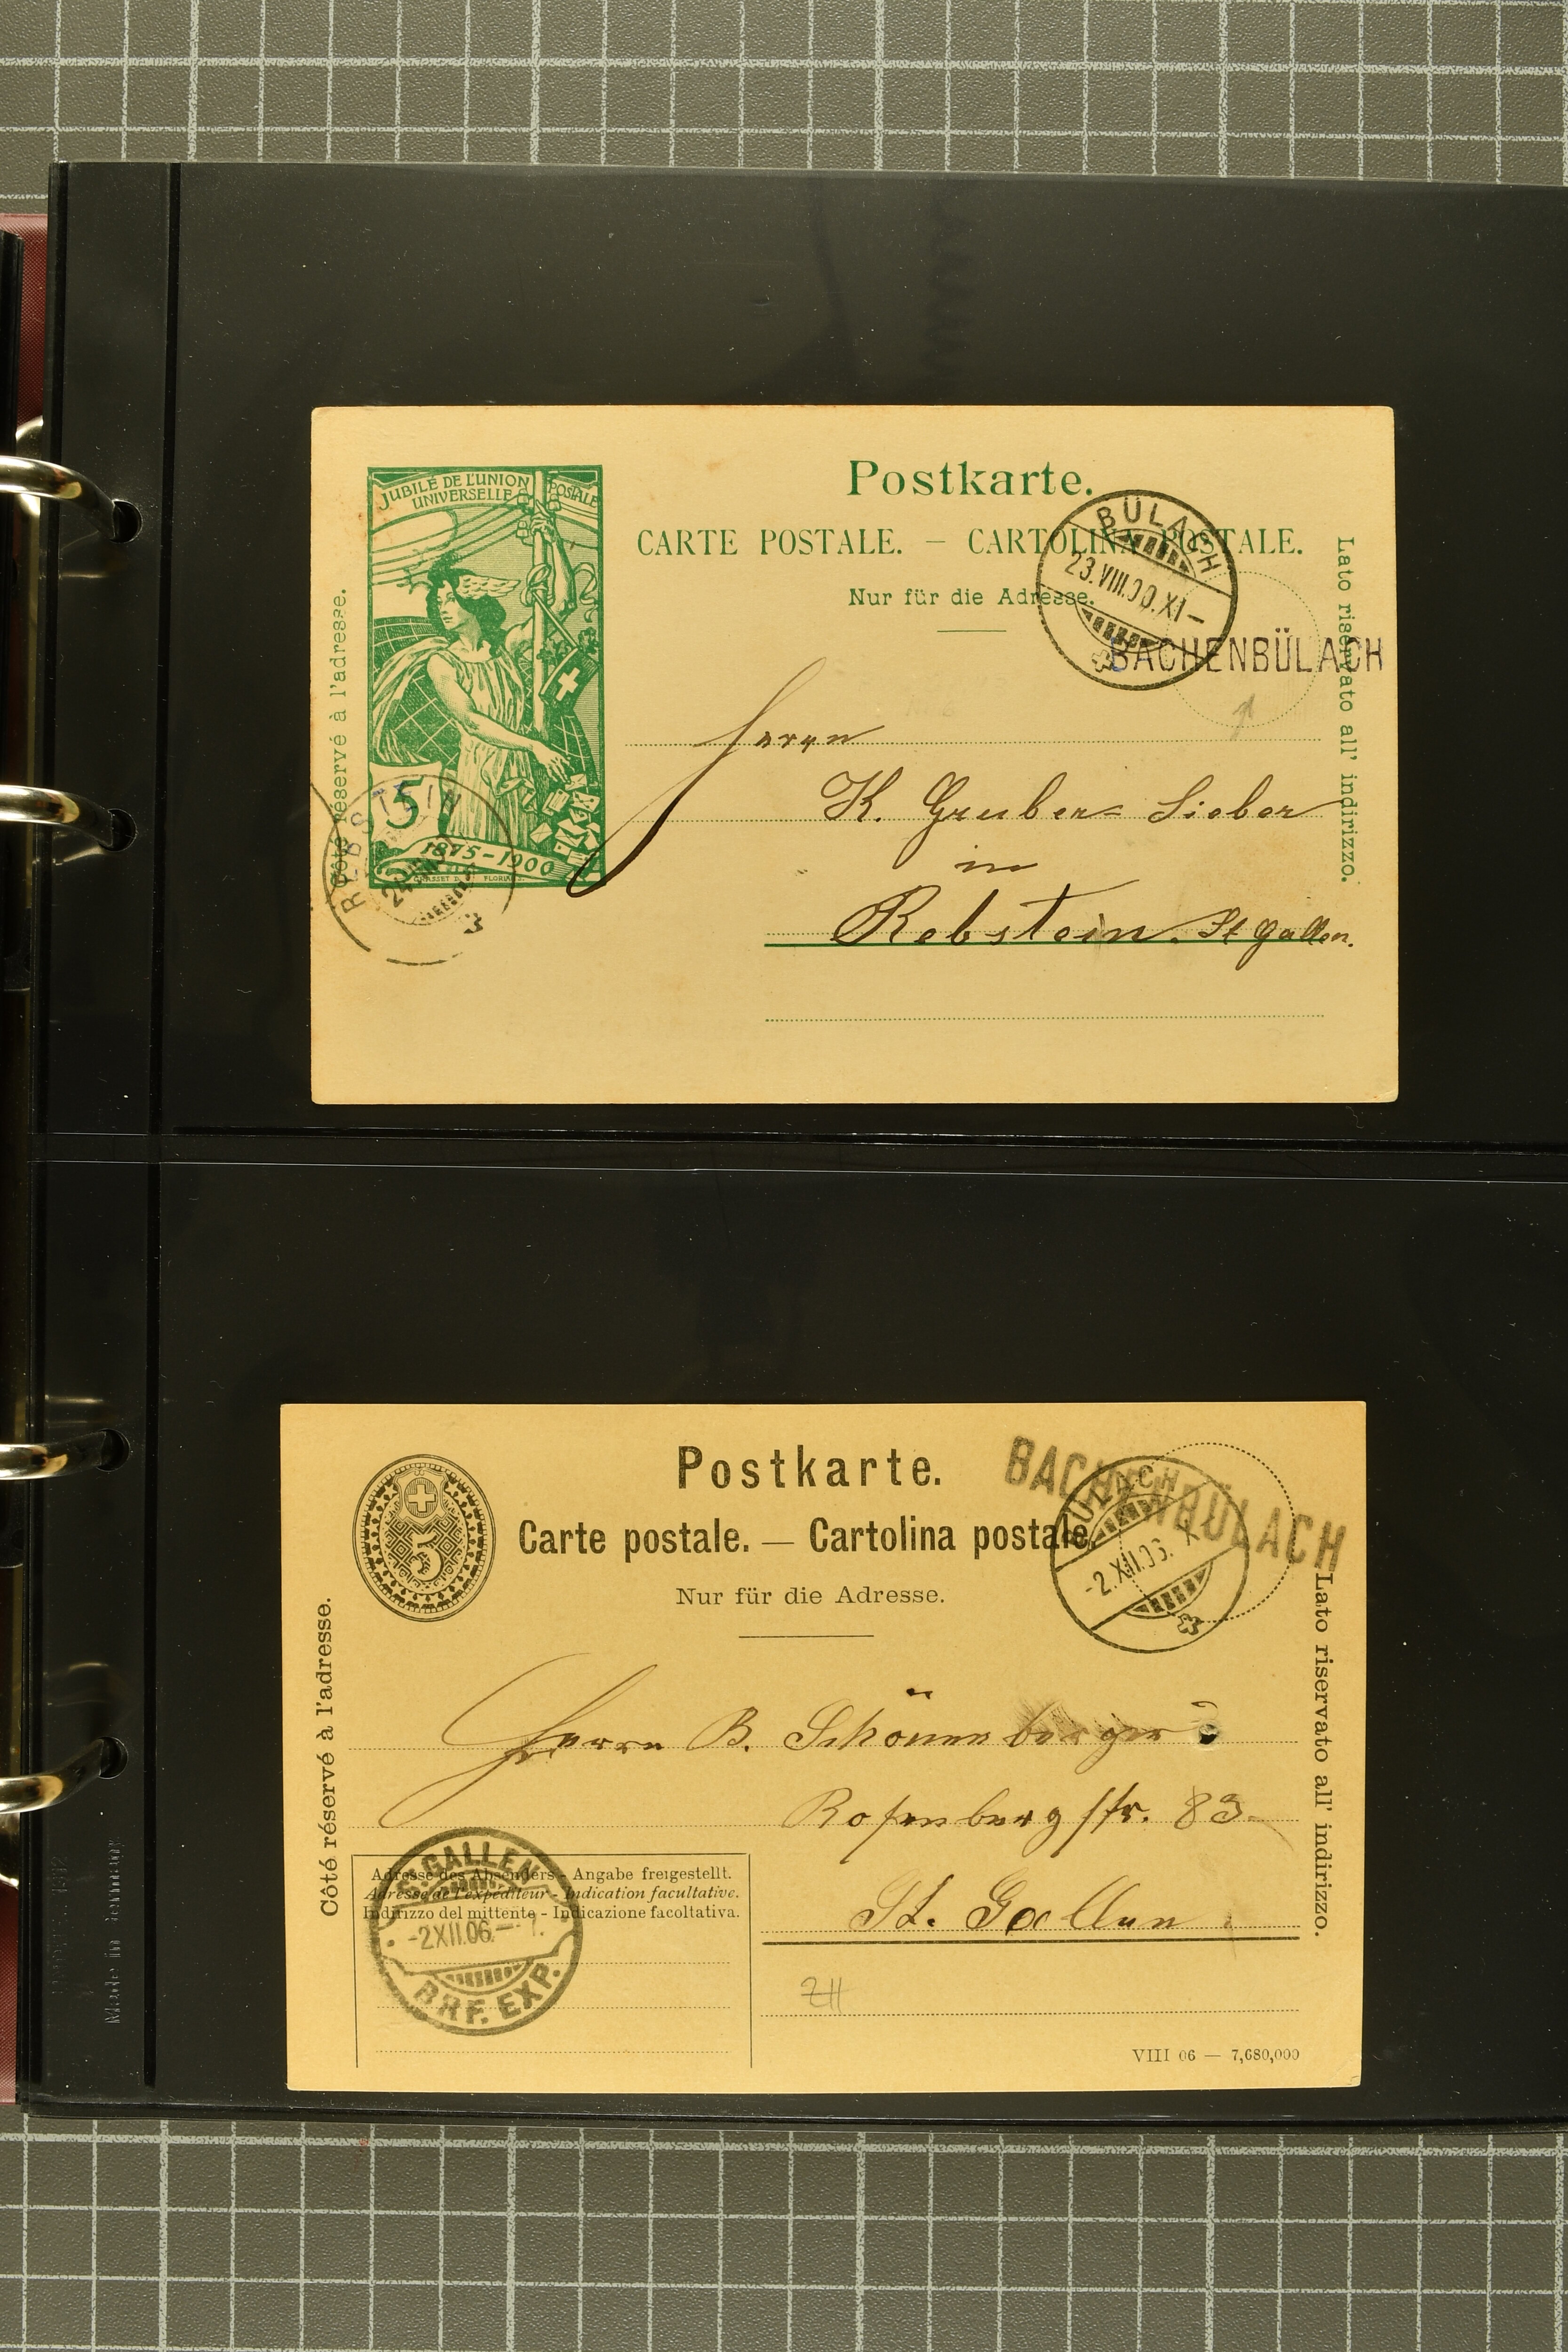 JUBILÉ DE L'UNION POSTALE
UNIVERSELLE
5
1875-1900
GRASSET D. FLORIAN S.
Postkarte.
CARTE POSTALE. – CARTOLINA POSTALE.
Nur für die Adresse.
BÜLACH
23.VIII.00.XI–
BACHENBÜLACH
Côté réservé à l'adresse.
Lato riservato all' indirizzo.
REBSTEIN
Herrn
K. Gruber= Sieber
in
Rebstein. St Gallen.
Postkarte.
Carte postale. — Cartolina postale.
Nur für die Adresse.
5
BACHENBÜLACH
BÜLACH
-2.XII.06. X
Côté réservé à l'adresse.
Lato riservato all' indirizzo.
Herrn B. Schönenberger
Rosenbergstr. 83
St. Gallen
Adresse des Absenders - Angabe freigestellt.
Adresse de l'expéditeur - Indication facultative.
Indirizzo del mittente - Indicazione facoltativa.
ST. GALLEN
-2XII.06.–7.
BRF. EXP.
ZH
VIII 06 — 7,680,000
Made in Germany